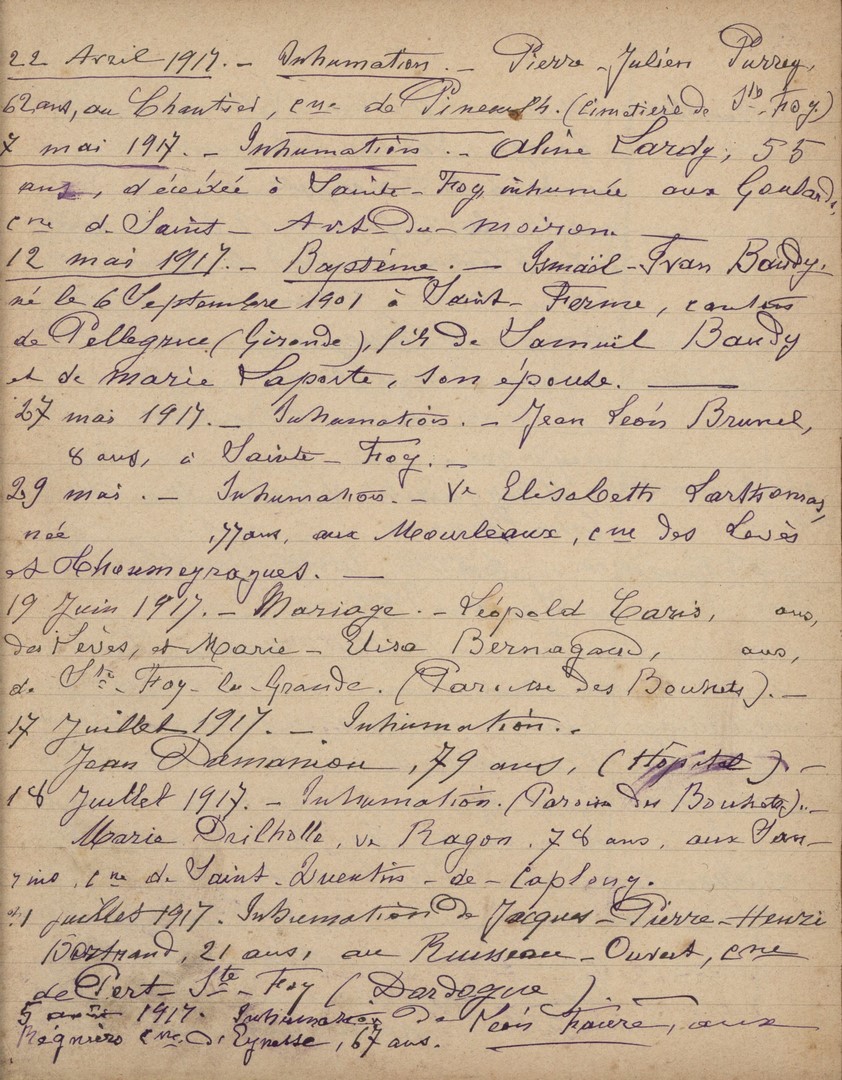 22 Avril 1917. - Inhumation. - Pierre-Julien Purrey,
62 ans, au Chantier, cne de Pineuilh. (Cimetière de Ste-Foy)
7 mai 1917. - Inhumation. - Aline Lardy, 55
ans, décédée à Sainte-Foy, inhumée aux Goulards,
cne de Saint-Avit-du-moiron.
12 mai 1917. - Baptême. - Ismaël-Ivan Baudy,
né le 6 Septembre 1901 à Saint-Ferme, canton
de Pellegrue (Gironde), fils de Samuël Baudy
et de Marie Laporte, son épouse.
27 mai 1917. - Inhumation. - Jean Léon Brunel,
8 ans, à Sainte-Foy. -
29 mai. - Inhumation. - Ve Elisabeth Larthomas,
née , 77 ans, aux Mourleaux, cne des Lèves
et Thoumeyragues. -
19 Juin 1917. - Mariage. - Léopold Caris, ans,
des Lèves, et Marie-Elisa Bernagaud, ans,
de Ste-Foy-la-Grande. (Paroisse des Bouhets). -
17 Juillet 1917. - Inhumation. -
Jean Damaniou, 79 ans, (Hôpital) -
18 Juillet 1917. - Inhumation. (Paroisse des Bouhets). -
Marie Drilholle, ve Ragon, 78 ans, aux
cne de Saint-Quentin-de-Caplong.
21 juillet 1917. Inhumation de Jacques-Pierre-Henri
Bertrand, 21 ans, au Ruisseau-Ouvert, cne
de Port-Ste-Foy (Dordogne)
5 août 1917. Inhumation de Léon Faure, aux
Régniers cne d'Eynesse, 67 ans.